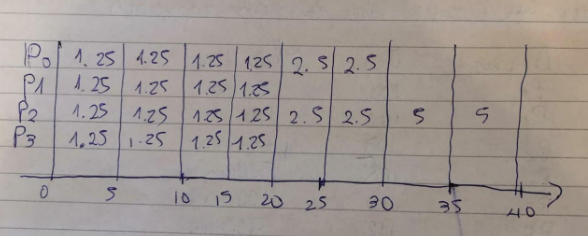 P0 1.25 1.25 1.25 1.25 2.5 2.5
P1 1.25 1.25 1.25 1.25
P2 1.25 1.25 1.25 1.25 2.5 2.5 5 5
P3 1.25 1.25 1.25 1.25
0 5 10 15 20 25 30 35 40